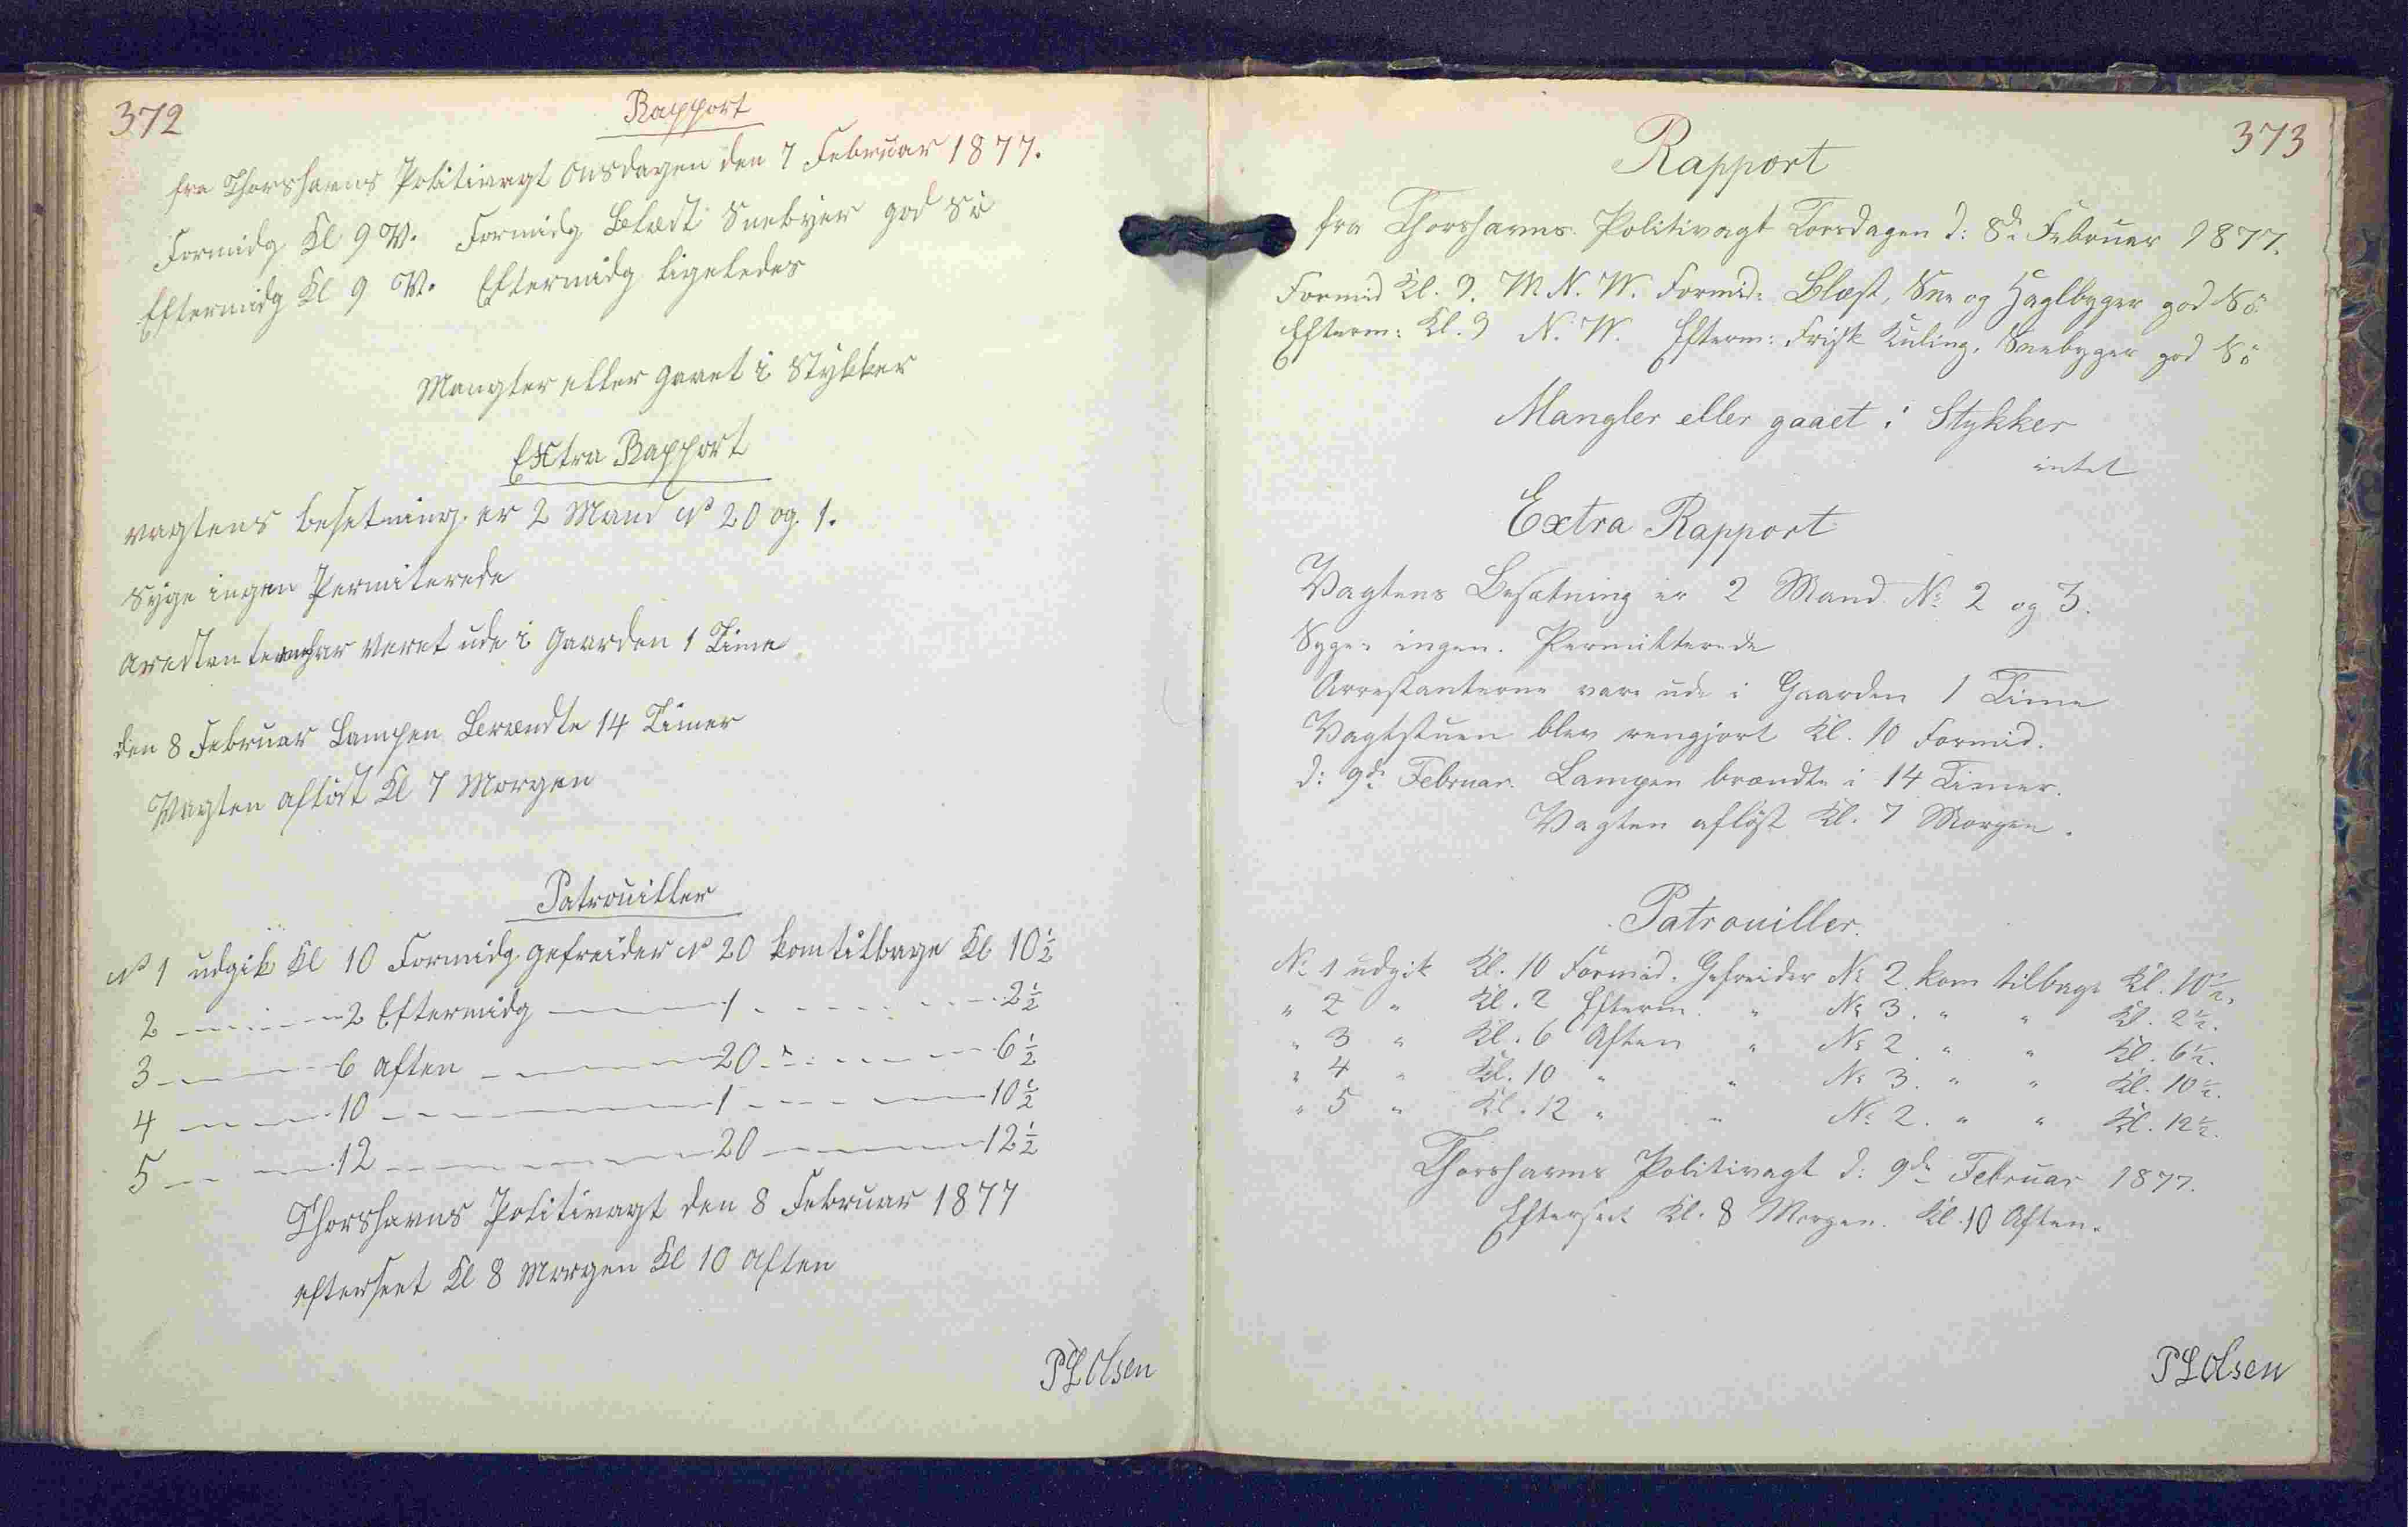 372
Rapport
fra Thorshavns Politivagt Onsdagen den 7 Februar 1877.
Formidg Kl 9 W. Formidg Blæst Snebyer god Sö
Eftermidg Kl 9 W. Eftermidg ligeledes
Mangler eller gaaet i Stykker
Extra Rapport
vagtens besetning er 2 Mand No 20 og 1.
Syge ingen Permiterede
Arestanterne har veret ude i Gaarden 1 Time
den 8 Februar Lampen Brændte 14 Timer
Vagten aflöst Kl 7 Morgen
Patrouiller
No 1 udgik Kl 10 Formidg gefreider No 20 kom tilbage Kl 10½
2 — — 2 Eftermidg — 1 — — 2½
3 — — 6 Aften — 20 — — 6½
4 — — 10 — — 1 — — 10½
5 — — 12 — — 20 — — 12½
Thorshavns Politivagt den 8 Februar 1877
efterseet Kl 8 Morgen Kl 10 Aften
PLOlsen
373
Rapport
fra Thorshavns Politivagt Torsdagen d: 8de Februar 1877.
Formid Kl. 9. W. N. W. Formid: Blæst, Sne og Haglbyger god Sö.
Efterm: Kl. 9 N. W. Efterm: Frisk Kuling, Snebyger god Sö
Mangler eller gaaet i Stykker
intet
Extra Rapport
Vagtens Besætning er 2 Mand No 2 og 3.
Syge: ingen. Permitterede
Arrestanterne vare ude i Gaarden 1 Time
Vagtstuen blev rengjort Kl. 10 Formid.
d: 9de Februar. Lampen brændte i 14 Timer.
Vagten aflöst Kl. 7 Morgen.
Patrouiller.
No 1 udgik Kl. 10 Formid. Gefreider No 2. kom tilbage Kl. 10½.
" 2 " Kl. 2 Efterm. " No 3. " " Kl. 2½.
" 3 " Kl. 6 Aften " No 2. " " Kl. 6½.
" 4 " Kl. 10 " " No 3. " " Kl. 10½.
" 5 " Kl. 12 " " No 2. " " Kl. 12½.
Thorshavns Politivagt d: 9de Februar 1877.
Efterseet Kl. 8 Morgen. Kl. 10 Aften.
PLOlsen